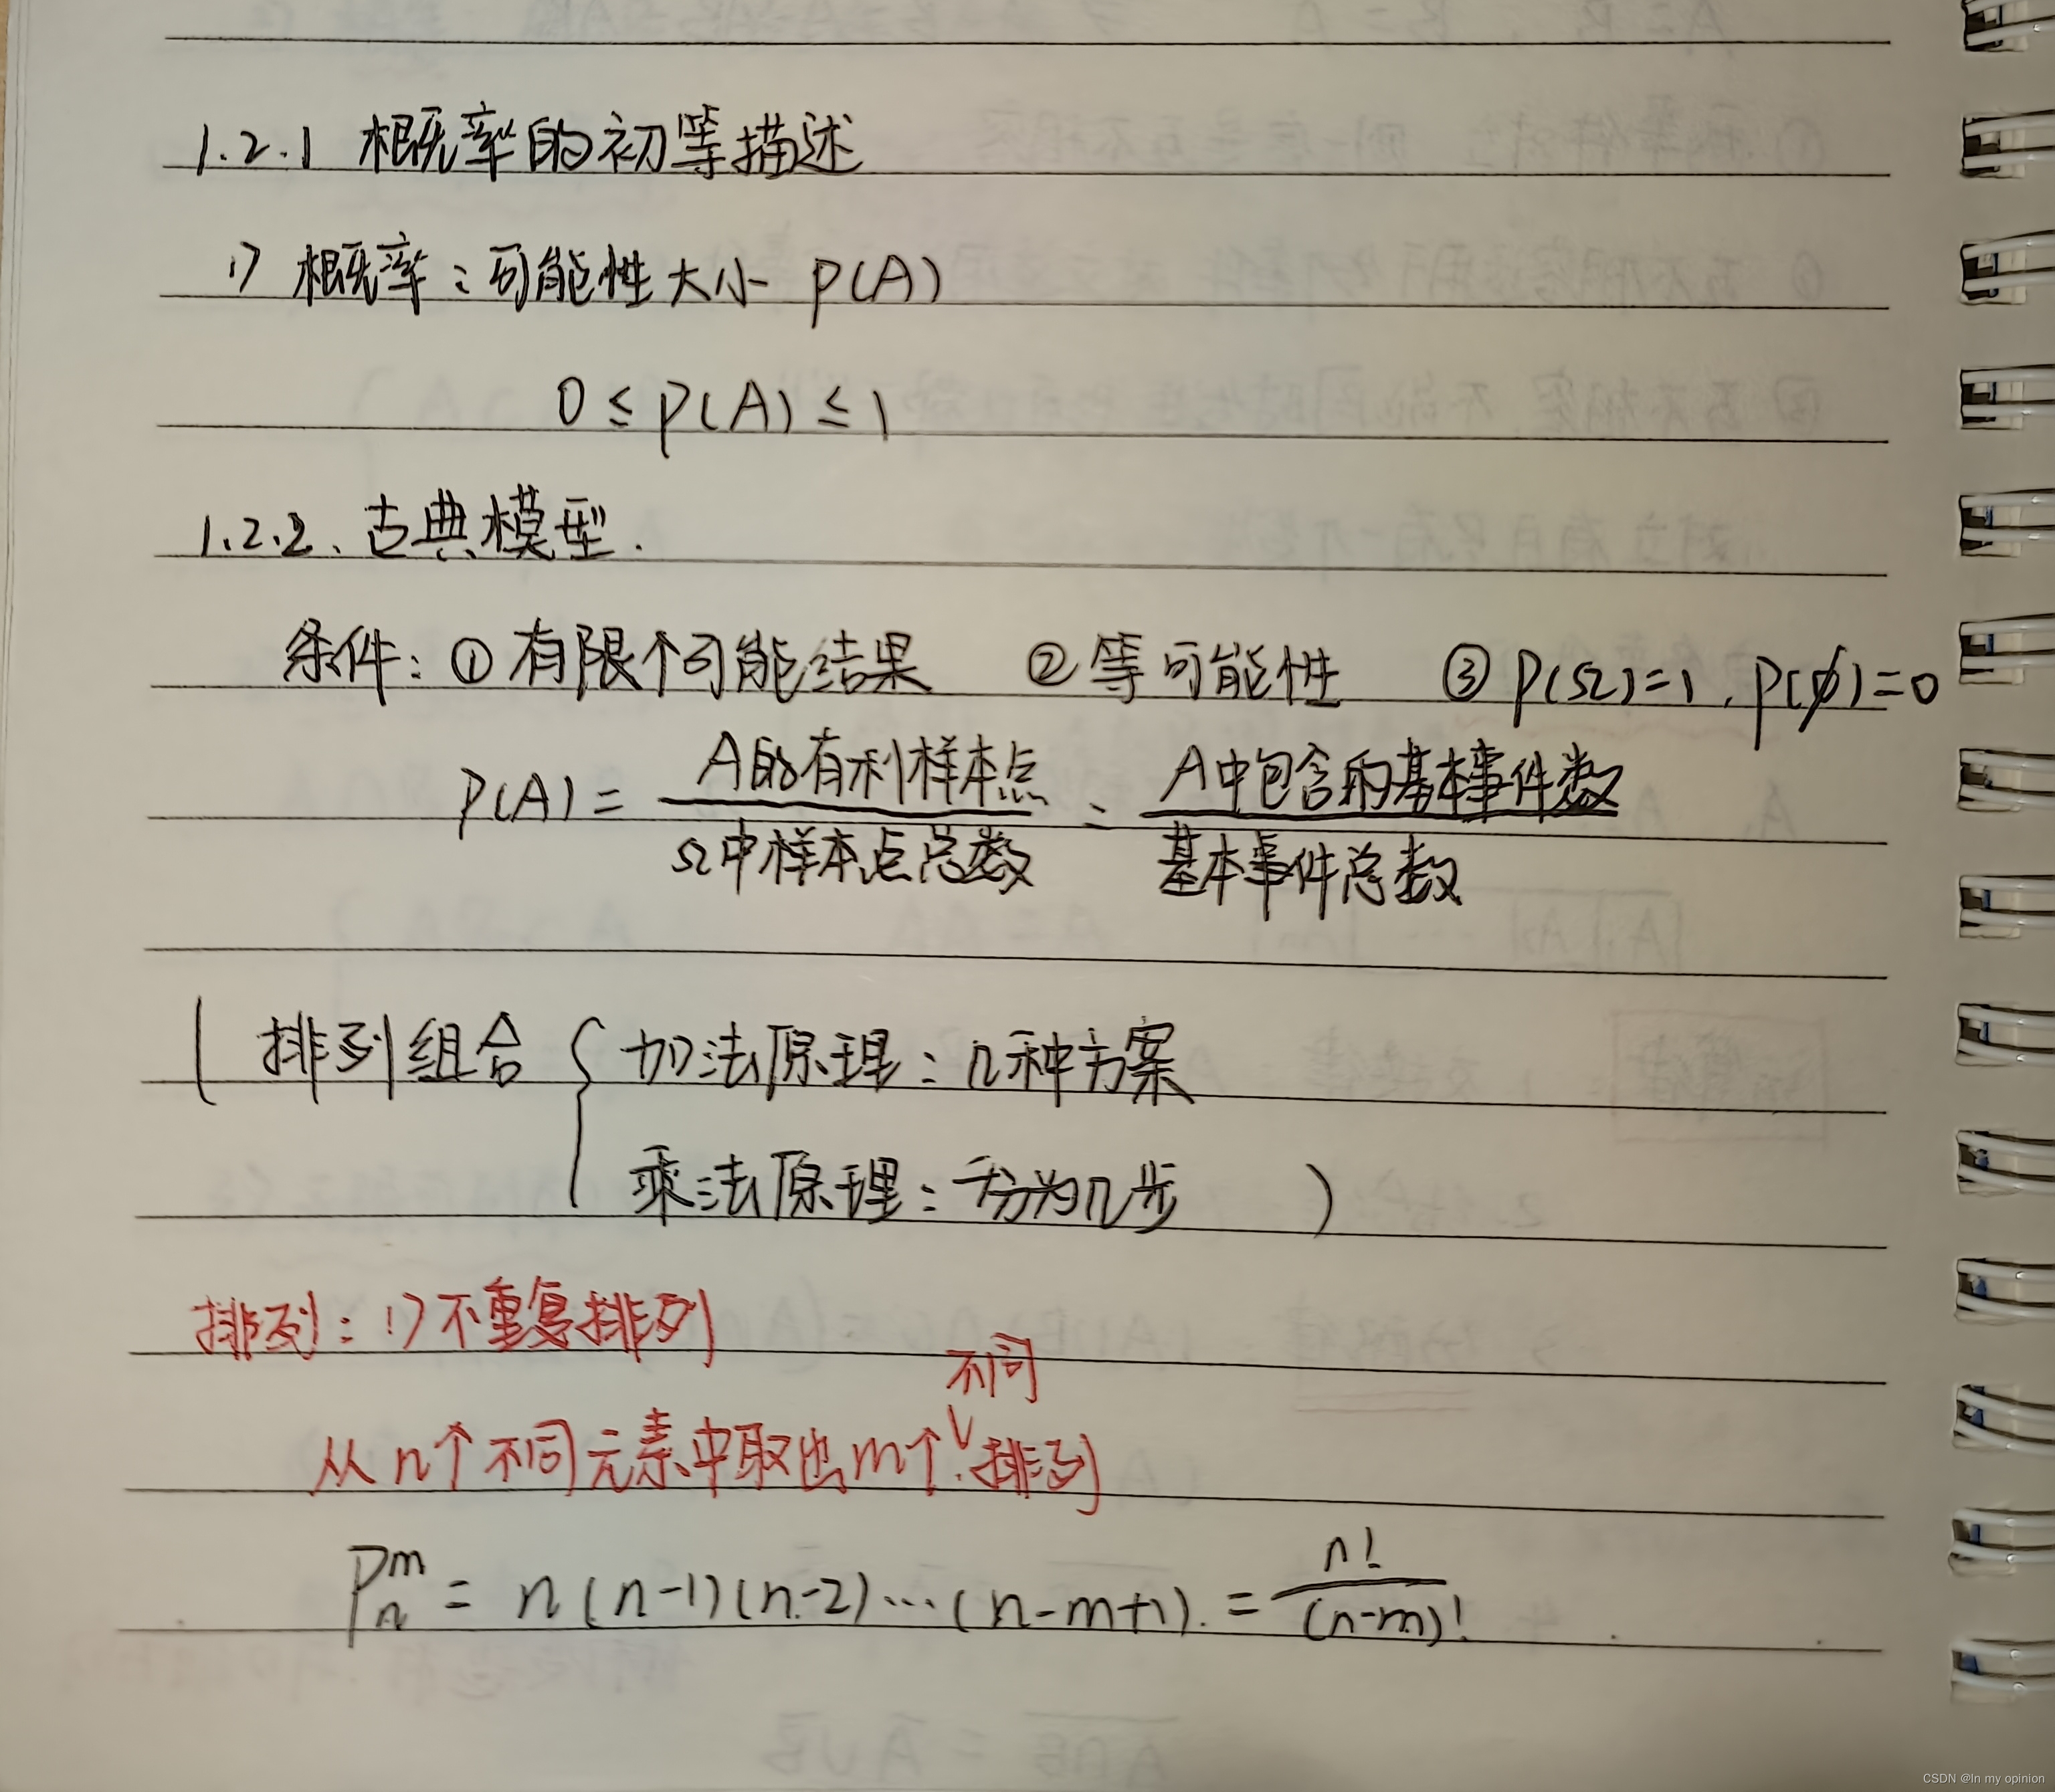 1.2.1 概率的初等描述
1) 概率:可能性大小 P(A)
0 ≤ P(A) ≤ 1
1.2.2、古典模型.
条件: ① 有限个可能结果 ② 等可能性 ③ P(Ω)=1, P(∅)=0
P(A) = A的有利样本点 / Ω中样本点总数 = A中包含的基本事件数 / 基本事件总数
( 排列组合 { 加法原理: n种方案
乘法原理: 分为n步 )
排列: 1) 不重复排列
不同
从n个不同元素中取出m个 排列
P_n^m = n(n-1)(n-2)…(n-m+1). = n! / (n-m)!
CSDN @In my opinion